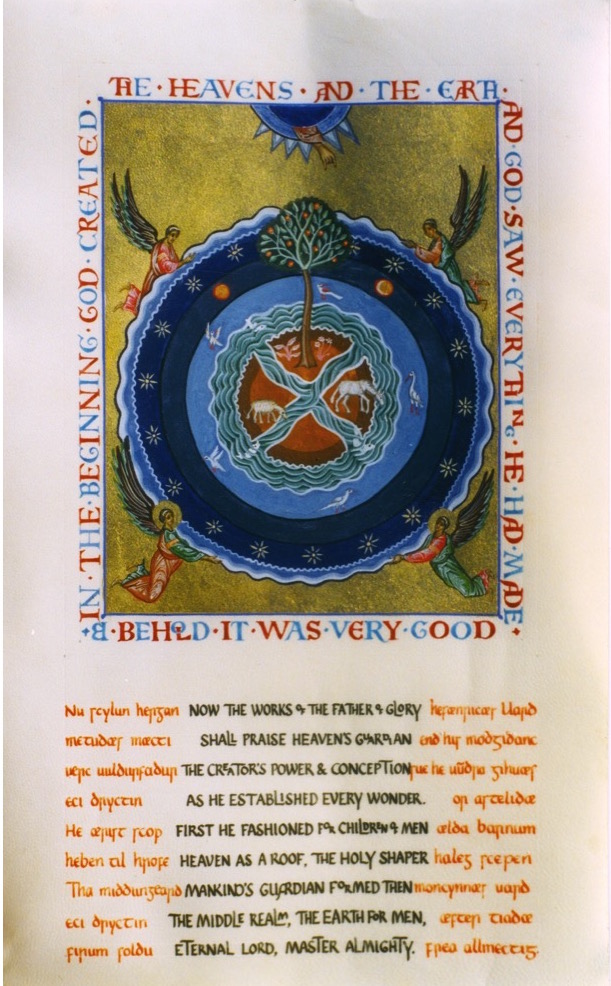 IN · THE · BEGINNING · GOD · CREATED ·
THE · HEAVENS · AND · THE · EARTH ·
AND · GOD · SAW · EVERYTHING · HE · HAD · MADE
& · BEHOLD · IT · WAS · VERY · GOOD
Nu scylun hergan NOW THE WORKS OF THE FATHER OF GLORY hefænricæs Uard
metudæs mæcti SHALL PRAISE HEAVEN'S GUARDIAN end his modgidanc
uerc uuldurfadur THE CREATOR'S POWER & CONCEPTION sue he uundra gihuæs
eci dryctin AS HE ESTABLISHED EVERY WONDER. or astelidæ
He ærist scop FIRST HE FASHIONED FOR CHILDREN OF MEN ælda barnum
heben til hrofe HEAVEN AS A ROOF, THE HOLY SHAPER haleg scepen
Tha middungeard MANKIND'S GUARDIAN FORMED THEN moncynnæs uard
eci dryctin THE MIDDLE REALM, THE EARTH FOR MEN, æfter tiadæ
firum foldu ETERNAL LORD, MASTER ALMIGHTY. frea allmectig.